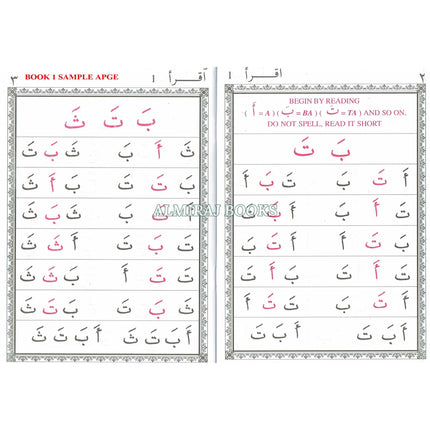 ٢
اقرأ ١
BEGIN BY READING
( أَ = A ) ( بَ = BA ) ( تَ = TA ) AND SO ON,
DO NOT SPELL, READ IT SHORT
بَ تَ
بَ تَ بَ تَ بَ تَ
تَ أَ بَ
تَ بَ أَ أَ تَ بَ
تَ أَ بَ بَ أَ تَ
أَ تَ بَ تَ تَ أَ
أَ بَ تَ أَ بَ تَ
اقرأ ١
BOOK 1 SAMPLE APGE
٣
بَ تَ ثَ
ثَ أَ بَ ثَ بَ تَ
ثَ تَ بَ أَ بَ ثَ
ثَ تَ بَ
تَ بَ تَ
ثَ تَ أَ تَ ثَ بَ
ثَ بَ تَ ثَ تَ بَ
أَ بَ تَ ثَ أَ بَ تَ ثَ
ALMIRAJ BOOKS